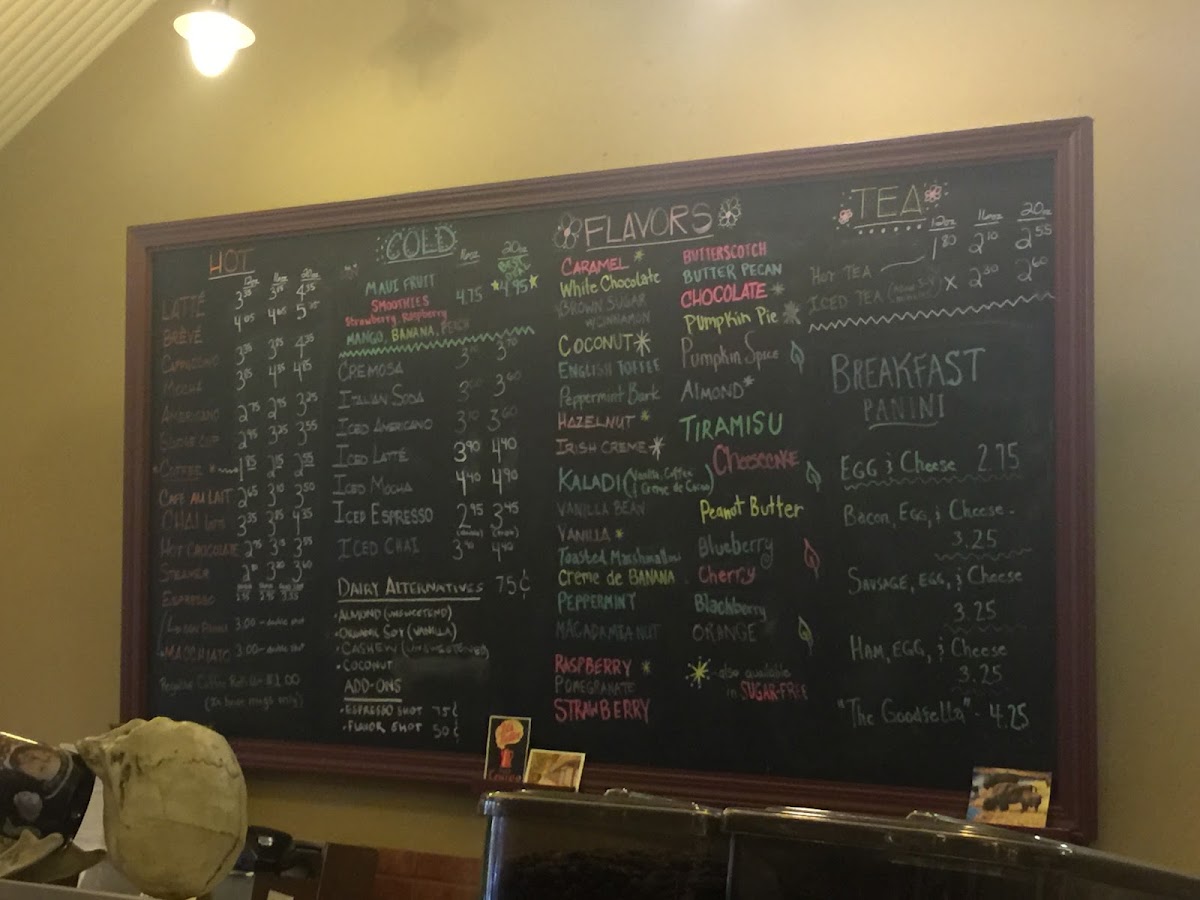 HOT
12oz 16oz 20oz
LATTÉ 3.35 3.85 4.35
BRÈVÉ 4.05 4.65 5.25
CAPPUCCINO 3.35 3.85 4.35
MOCHA 3.85 4.35 4.85
AMERICANO 2.75 2.95 3.25
2.95 3.25 3.55
COFFEE 1.85 2.55
CAFE AU LAIT 2.65 3.10 3.50
CHAI Latte 3.35 3.85 4.35
HOT CHOCOLATE 2.75 3.15 3.55
STEAMER 3.60
ESPRESSO
3.00 - double shot
MACCHIATO 3.00 - double shot
Regular Coffee Refills $1.00
(In house mugs only)
COLD
16oz 20oz
MAUI FRUIT
SMOOTHIES 4.75 4.95
Strawberry, Raspberry
MANGO, BANANA, PEACH
CREMOSA 3.70
ITALIAN SODA 3.60
ICED AMERICANO 3.10 3.60
ICED LATTÉ 3.90 4.40
ICED MOCHA 4.40 4.90
ICED ESPRESSO 2.95 3.45
ICED CHAI 3.90 4.40
DAIRY ALTERNATIVES 75¢
• ALMOND (UNSWEETENED)
• ORGANIC SOY (VANILLA)
• CASHEW (UNSWEETENED)
• COCONUT
ADD-ONS
• ESPRESSO SHOT 75¢
• FLAVOR SHOT 50¢
FLAVORS
CARAMEL *
White Chocolate
BROWN SUGAR
w/CINNAMON
COCONUT *
ENGLISH TOFFEE
Peppermint Bark
HAZELNUT *
IRISH CREME *
KALADI (Vanilla, Coffee, & Creme de Cacao)
VANILLA BEAN
VANILLA *
Toasted Marshmallow
Creme de BANANA
PEPPERMINT
MACADAMIA NUT
RASPBERRY *
POMEGRANATE
STRAWBERRY
BUTTERSCOTCH
BUTTER PECAN
CHOCOLATE *
PUMPKIN Pie *
Pumpkin Spice
ALMOND *
TIRAMISU
Cheesecake
Peanut Butter
Blueberry
Cherry
Blackberry
ORANGE
* - also available
in SUGAR-FREE
TEA
12oz 16oz 20oz
HOT TEA 1.80 2.10 2.55
ICED TEA X 2.30 2.60
BREAKFAST
PANINI
EGG & Cheese 2.75
Bacon, EGG, & Cheese -
3.25
SAUSAGE, EGG, & Cheese
3.25
HAM, EGG, & Cheese
3.25
"The Goodfella" - 4.25